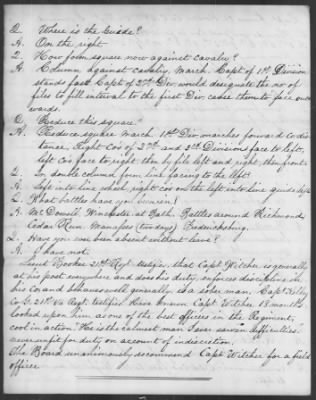 Q. Where is the Guide?
A. On the right
Q. How form square now against cavalry?
A. Column against cavalry, March. Capt of 1st Division
stands fast Capt of 2nd Div. would designate the no of
files to fill interval to the first Div. cause them to face out
wards.
Q. Reduce this square.
A. Reduce square March 1st Div. marches forward Co dis
tance. Right Co's of 2nd and 3rd Divisions face to left,
left Cos face to right, then by file left and right, then front.
Q. In double column form line facing to the left?
A. Left into line wheel, right cos on the left into line guide left
Q. What battles have you been in?
A. McDowell, Winchester, at Bath. Battles around Richmond,
Cedar Run. Manassas (two days) Fredericksburg.
Q. Have you ever been absent without leave?
A. I have not.
Lieut Booker 21st Regt. testifies, that Capt Witcher is generally
at his post everywhere and does his duty, enforces discipline in
his Co, and behaves well generally, is a sober man. Capt
Co G. 21st Va Regt. testified Have known Capt Witcher 18 months
looked upon him as one of the best officers in the Regiment,
cool in action. He is the calmest man I ever saw in difficulties
never unfit for duty on account of indiscretion.
The Board unanimously recommend Capt Witcher for a field
officer